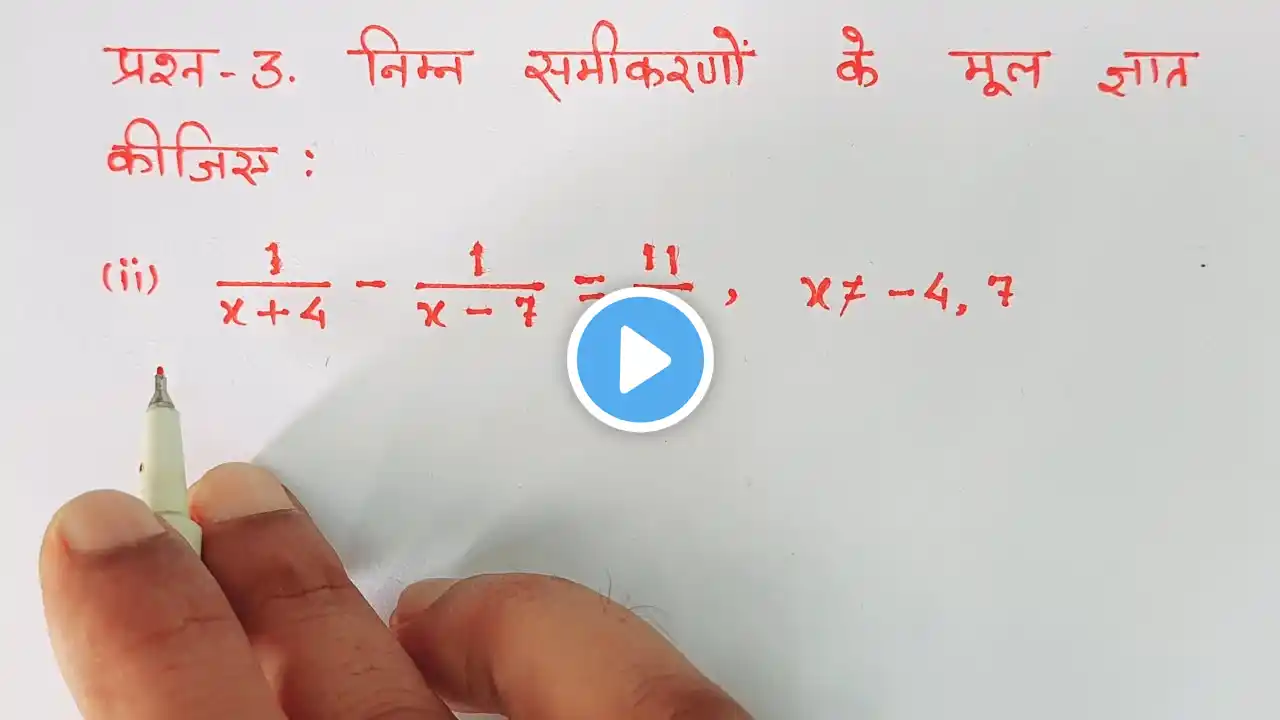 प्रश्न-3. निम्न समीकरणों के मूल ज्ञात
कीजिए :
(ii) 1/(x+4) - 1/(x-7) = 11/ , x ≠ -4, 7